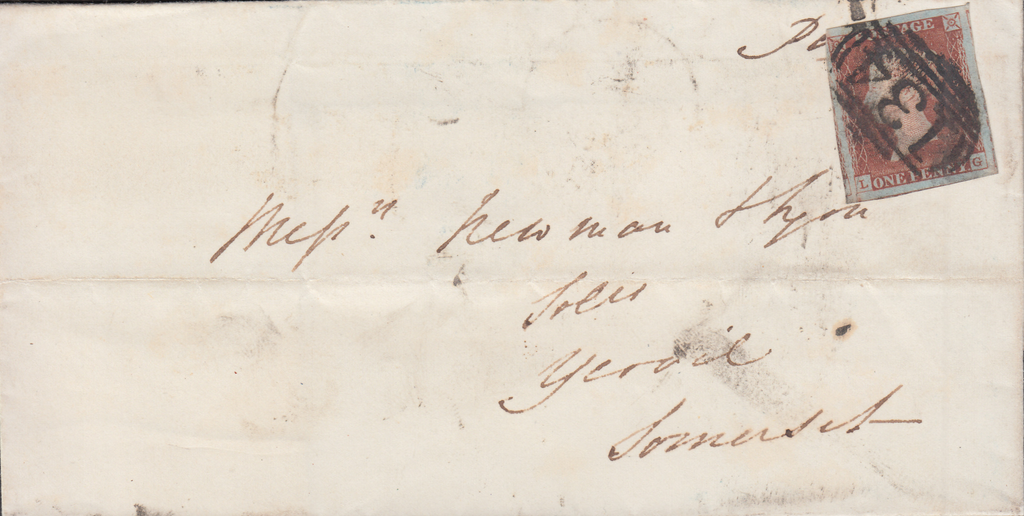 Pd
POSTAGE
134
L ONE PENNY G
Messrs. Newman & Lyon
Solrs
Yeovil
Somerset